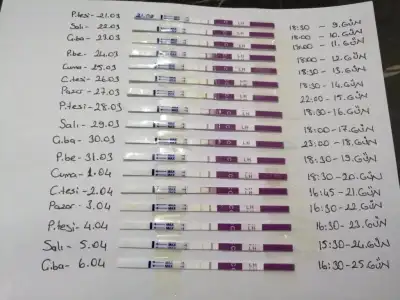 P.tesi - 21.03 21.03 LH 18:30 - 9.GÜN
Salı - 22.03 LH 18:00 - 10.GÜN
Ç.ba - 23.03 LH 19:00 - 11.GÜN
P.be - 24.03 LH 18:00 - 12.GÜN
Cuma - 25.03 LH 18:30 - 13.GÜN
C.tesi - 26.03 LH 18:30 - 14.GÜN
Pazar - 27.03 LH 22:00 - 15.GÜN
P.tesi - 28.03 LH 18:30 - 16.GÜN
Salı - 29.03 LH 18:00 - 17.GÜN
Ç.ba - 30.03 LH 23:00 - 18.GÜN
P.be - 31.03 LH 18:30 - 19.GÜN
Cuma - 1.04 LH 18:30 - 20.GÜN
C.tesi - 2.04 LH 16:45 - 21.GÜN
Pazar - 3.04 LH 16:30 - 22.GÜN
P.tesi - 4.04 LH 16:30 - 23.GÜN
Salı - 5.04 LH 15:30 - 24.GÜN
Ç.ba - 6.04 LH 16:30 - 25.GÜN